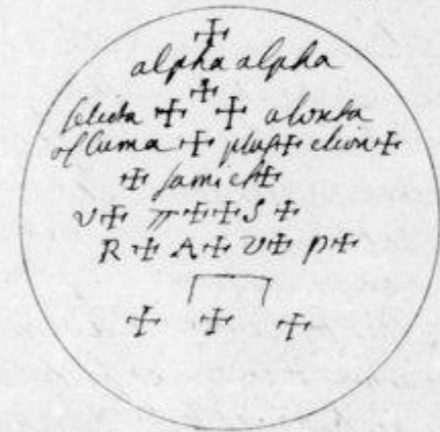 ✠
alpha alpha
✠
✠ ✠ alonta
of Cuma ✠ plust✠ elion✠
✠ samich✠
v✠ π✠✠S ✠
R ✠ A✠ v✠ p✠
✠ ✠ ✠